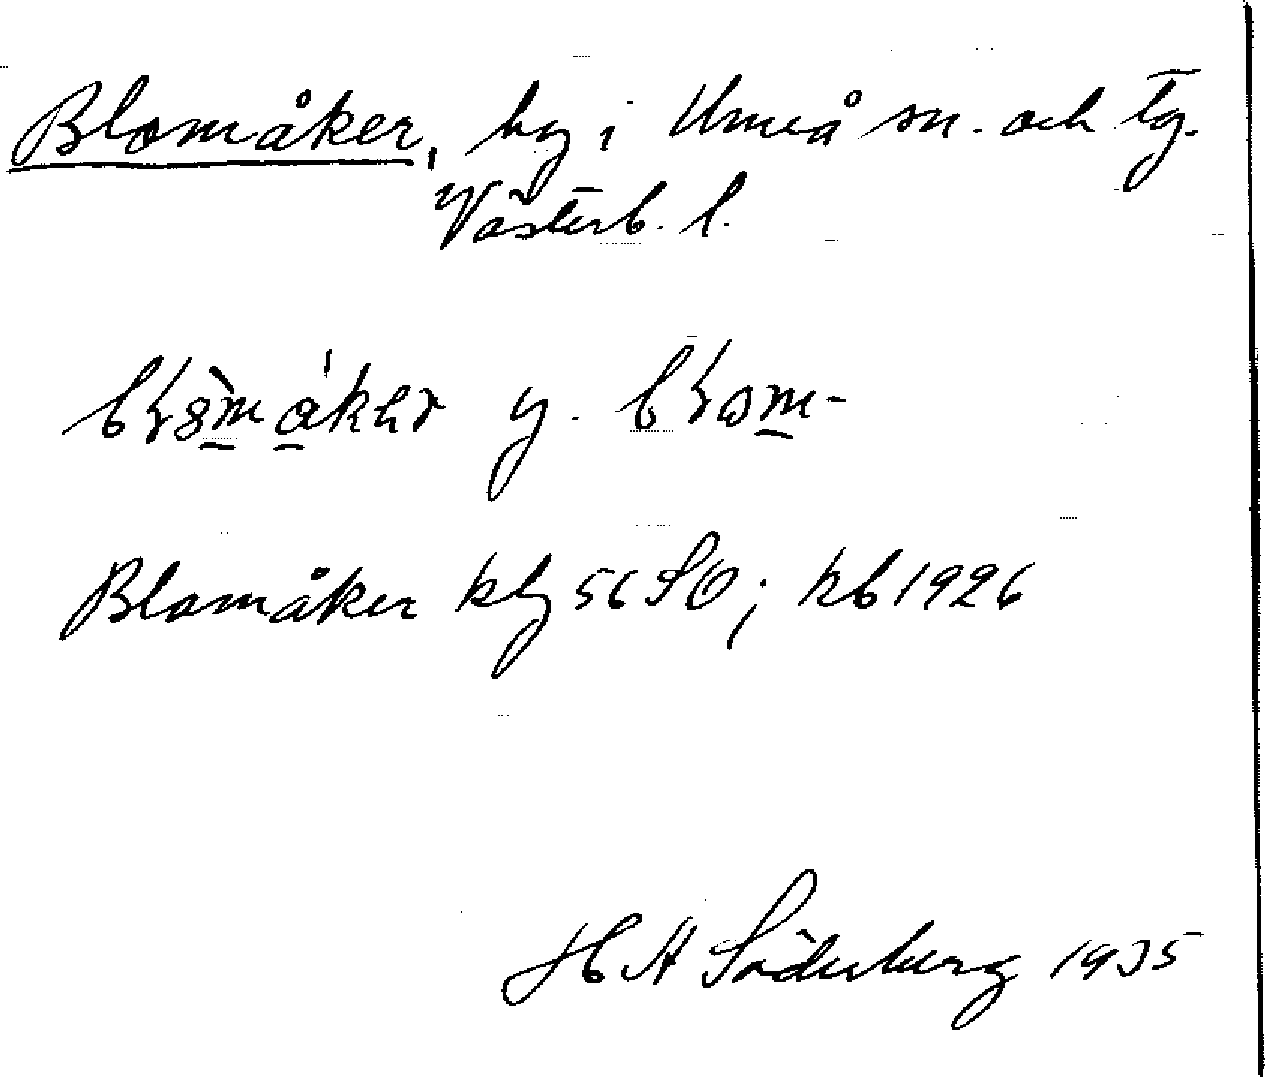 Blomåker, by i Umeå sn. och tg.
Västerb. l.
y.
Blomåker kbg 56 SO; kb 1926
H A Söderberg 1935